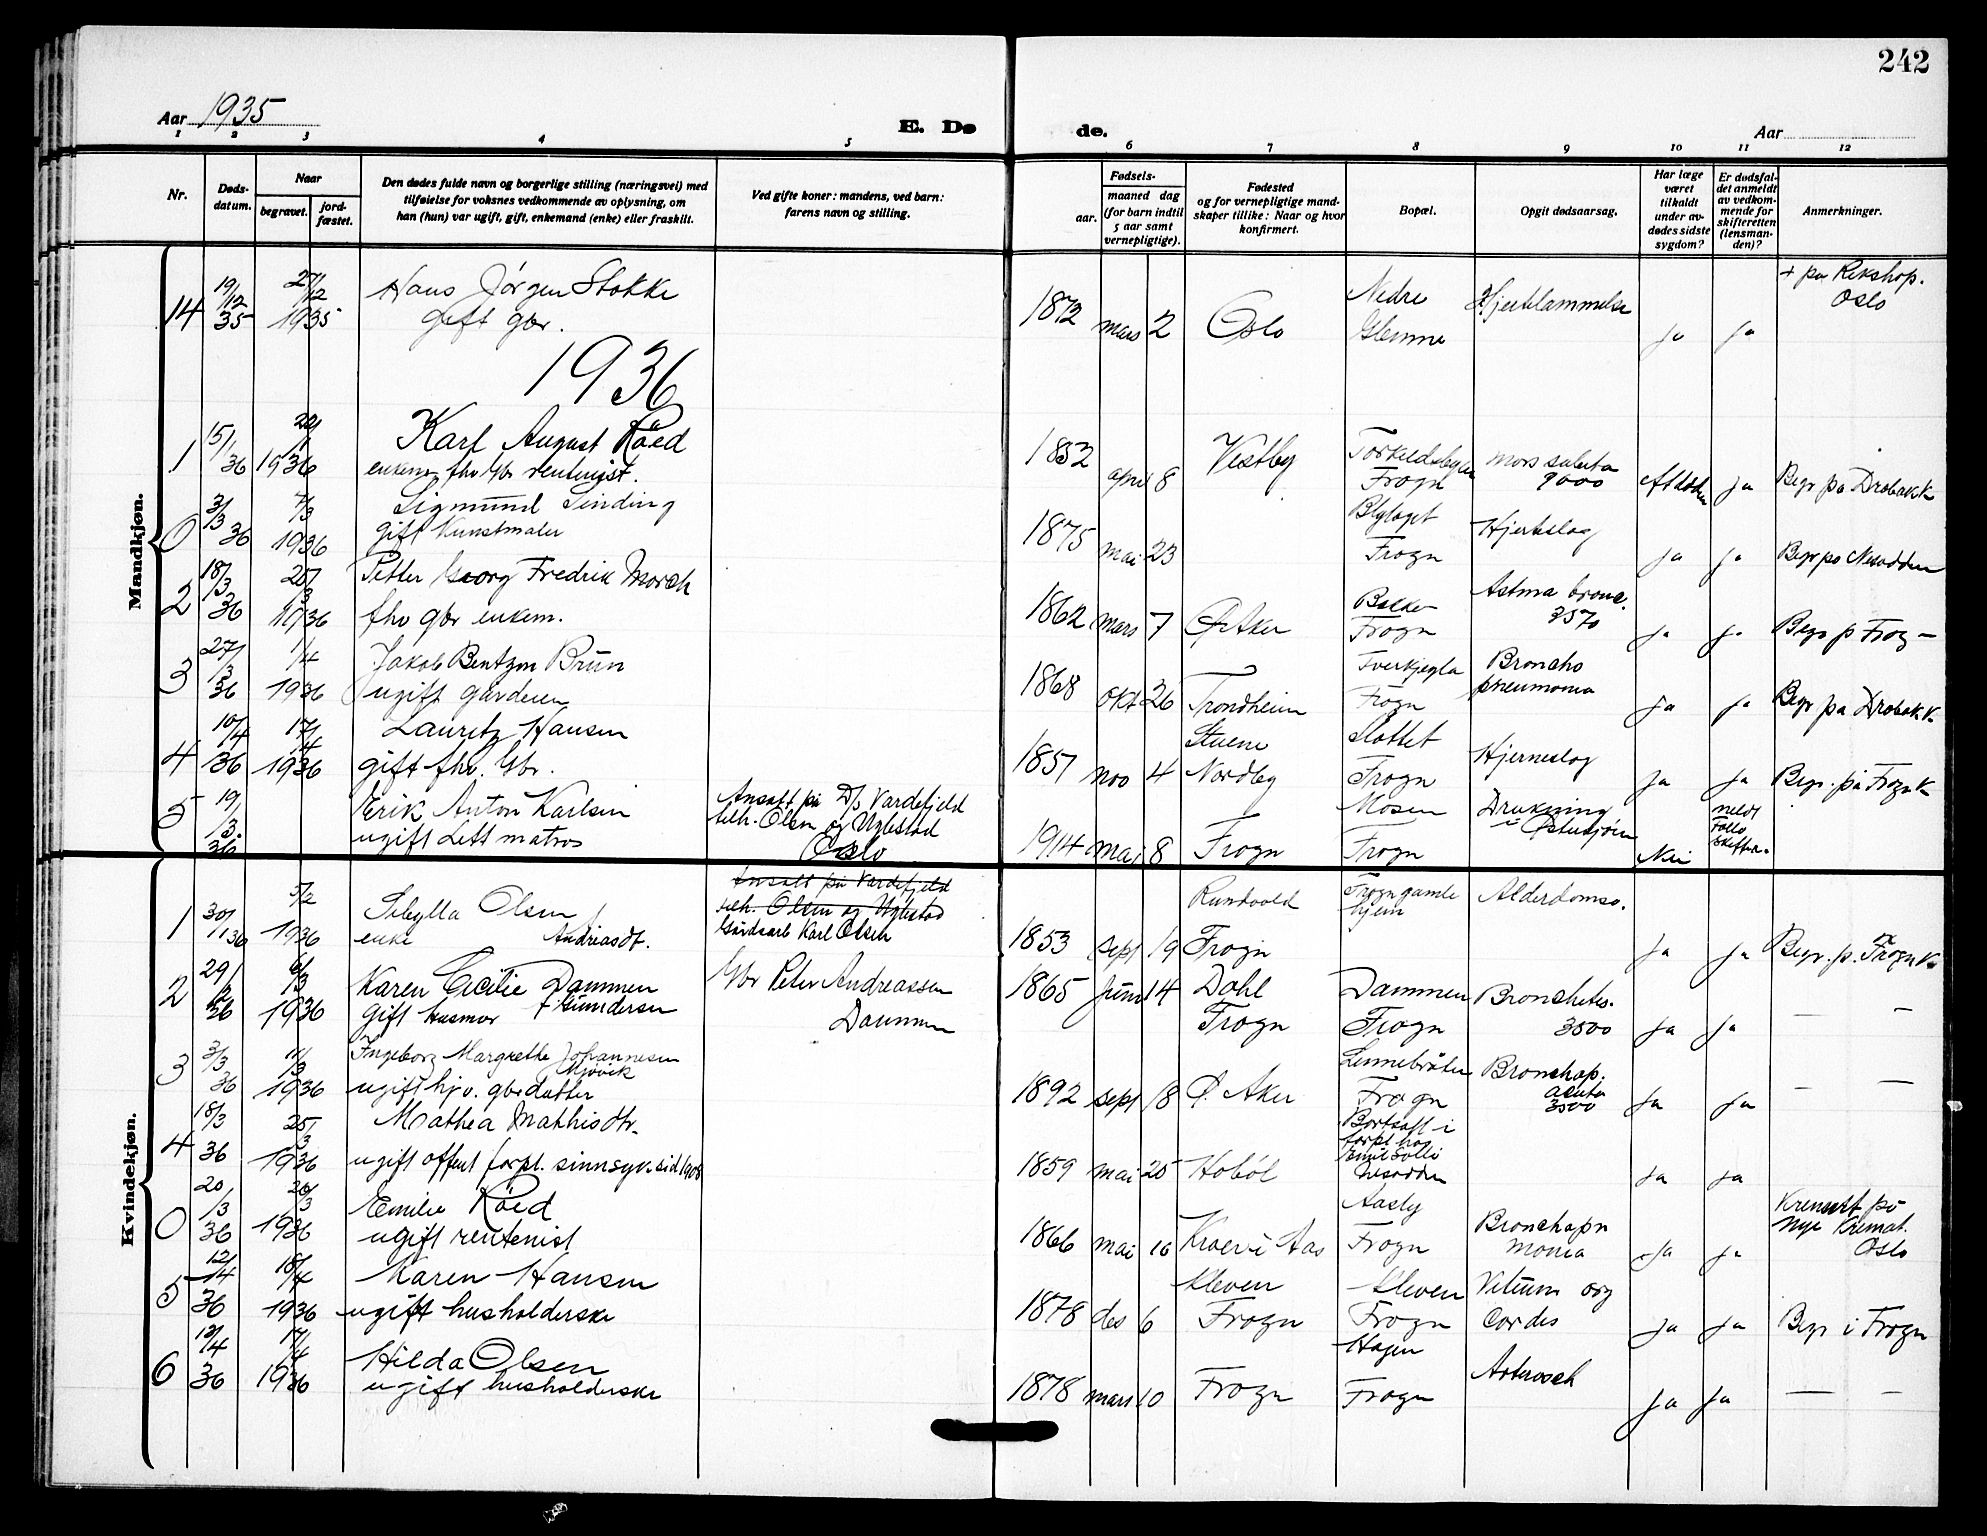 242
Aar 1935
E. Dø de.
Aar
1 2 3 4 5 6 7 8 9 10 11 12
Nr.
Døds-
datum.
Naar
begravet.
jord-
fæstet.
Den dødes fulde navn og borgerlige stilling (næringsvei) med
tilføielse for voksnes vedkommende av oplysning, om
han (hun) var ugift, gift, enkemand (enke) eller fraskilt.
Ved gifte koner: mandens, ved barn:
farens navn og stilling.
Fødsels-
aar.
maaned dag
(for barn indtil
5 aar samt
vernepligtige).
Fødested
og for vernepligtige mand-
skaper tillike: Naar og hvor
konfirmert.
Bopæl.
Opgit dødsaarsag.
Har læge
været
tilkaldt
under av-
dødes sidste
sygdom?
Er dødsfal-
det anmeldt
av vedkom-
mende for
skifteretten
(lensman-
den)?
Anmerkninger.
Mandkjøn.
14 19/12 35 27/12 1935 Hans Jørgen Stokke
gift gbr.
1872 mars 2 Oslo
Nedre
Glenne
Hjertelammelse
ja ja
+ på Rikshop.
Oslo
1936
1 15/1 36 22/1 1936 Karl August Röed
enkem. fhv Gbr rentenist.
1852 april 8 Vestby
Frogn
mors subita
9000
ja
Begr på Drøbak K
0 3/3 36 7/3 1936 Sigmund Sinding
gift Kunstmaler
1875 mai 23
Blylaget
Frogn
Hjerteslag
ja ja
Begr på Nesodden
2 18/3 36 25/3 1936 Petter Georg Fredrik Morch
fhv gbr enkem.
1862 mars 7 Ø Aker
Bakker
Frogn
Astma bronc.
3570
ja ja
Begr p Frog-
3 27/3 36 1/4 1936 Jakob Bentzon Brun
ugift gårdeier
1868 okt 26 Trondheim
Frogn
Broncho
pneumonia
ja ja
Begr på Drøbak K
4 10/4 36 17/4 1936 Lauritz Hansen
gift fhv. Gbr.
1851 nov 4
Stuene
Nordby
Slottet
Frogn
Hjerneslag
ja ja
Begr. på Frogn K
5 19/3 36 Erik Anton Karlsen
ugift Lettmatros
Ansatt på D/s Vardefjeld
tilh. Olsen og Ugelstad
Oslo
1914 mai 8 Frogn
Mosen
Frogn
Drukning
i Østersjøen
Nei
meldt
Follo
skiftra.
Kvindekjøn.
1 30/1 36 5/2 1936 Sibylla Olsen
enke Andreasdt.
Ansatt på Vardefjeld
tilh. Olsen og Ugelstad
Gårdsarb Karl Olsen
1853 sept 19
Rundvold
Frogn
Frogn gamle
hjem
Alderdomss.
ja ja
Begr. p. Frogn K
2 29/2 36 6/3 1936 Karen Cecilie Dammen
gift husmor f. Gundersen
Gbr Peter Andreassen
Dammen
1865 juni 14
Dahl
Frogn
Dammen
Frogn
Bronchites.
3500
ja ja
— —
3 3/3 36 11/3 1936 Ingeborg Margrethe Johannesen
Gjøvik
ugift hjv. gbrdatter
1892 sept 18 Ø. Aker
Linnebråten
Frogn
Bronchop.
acuta
3500
ja ja
— —
4 18/3 36 25/3 1936 Mathea Mathisdtr.
ugift offent forpl. sinnsyk sid 1908
1859 mai 25 Hobøl
Bortsatt i
forpl hos
Emil Solli
Nesodden
ja ja
0 20/3 36 26/3 1936 Emilie Röed
ugift rentenist
1866 mai 16 Kroer i Aas
Aasly
Frogn
Bronchopn
monia
ja ja
Kremert på
nye Kremat.
Oslo
5 12/4 36 18/4 1936 Karen Hansen
ugift husholderske
1878 des 6
Kleven
Frogn
Kleven
Frogn
Vitium org
Cordis
ja ja
Begr i Frogn
6 12/4 36 17/4 1936 Hilda Olsen
ugift husholderske
1878 mars 10 Frogn
Hagen
Frogn
ja ja
— —